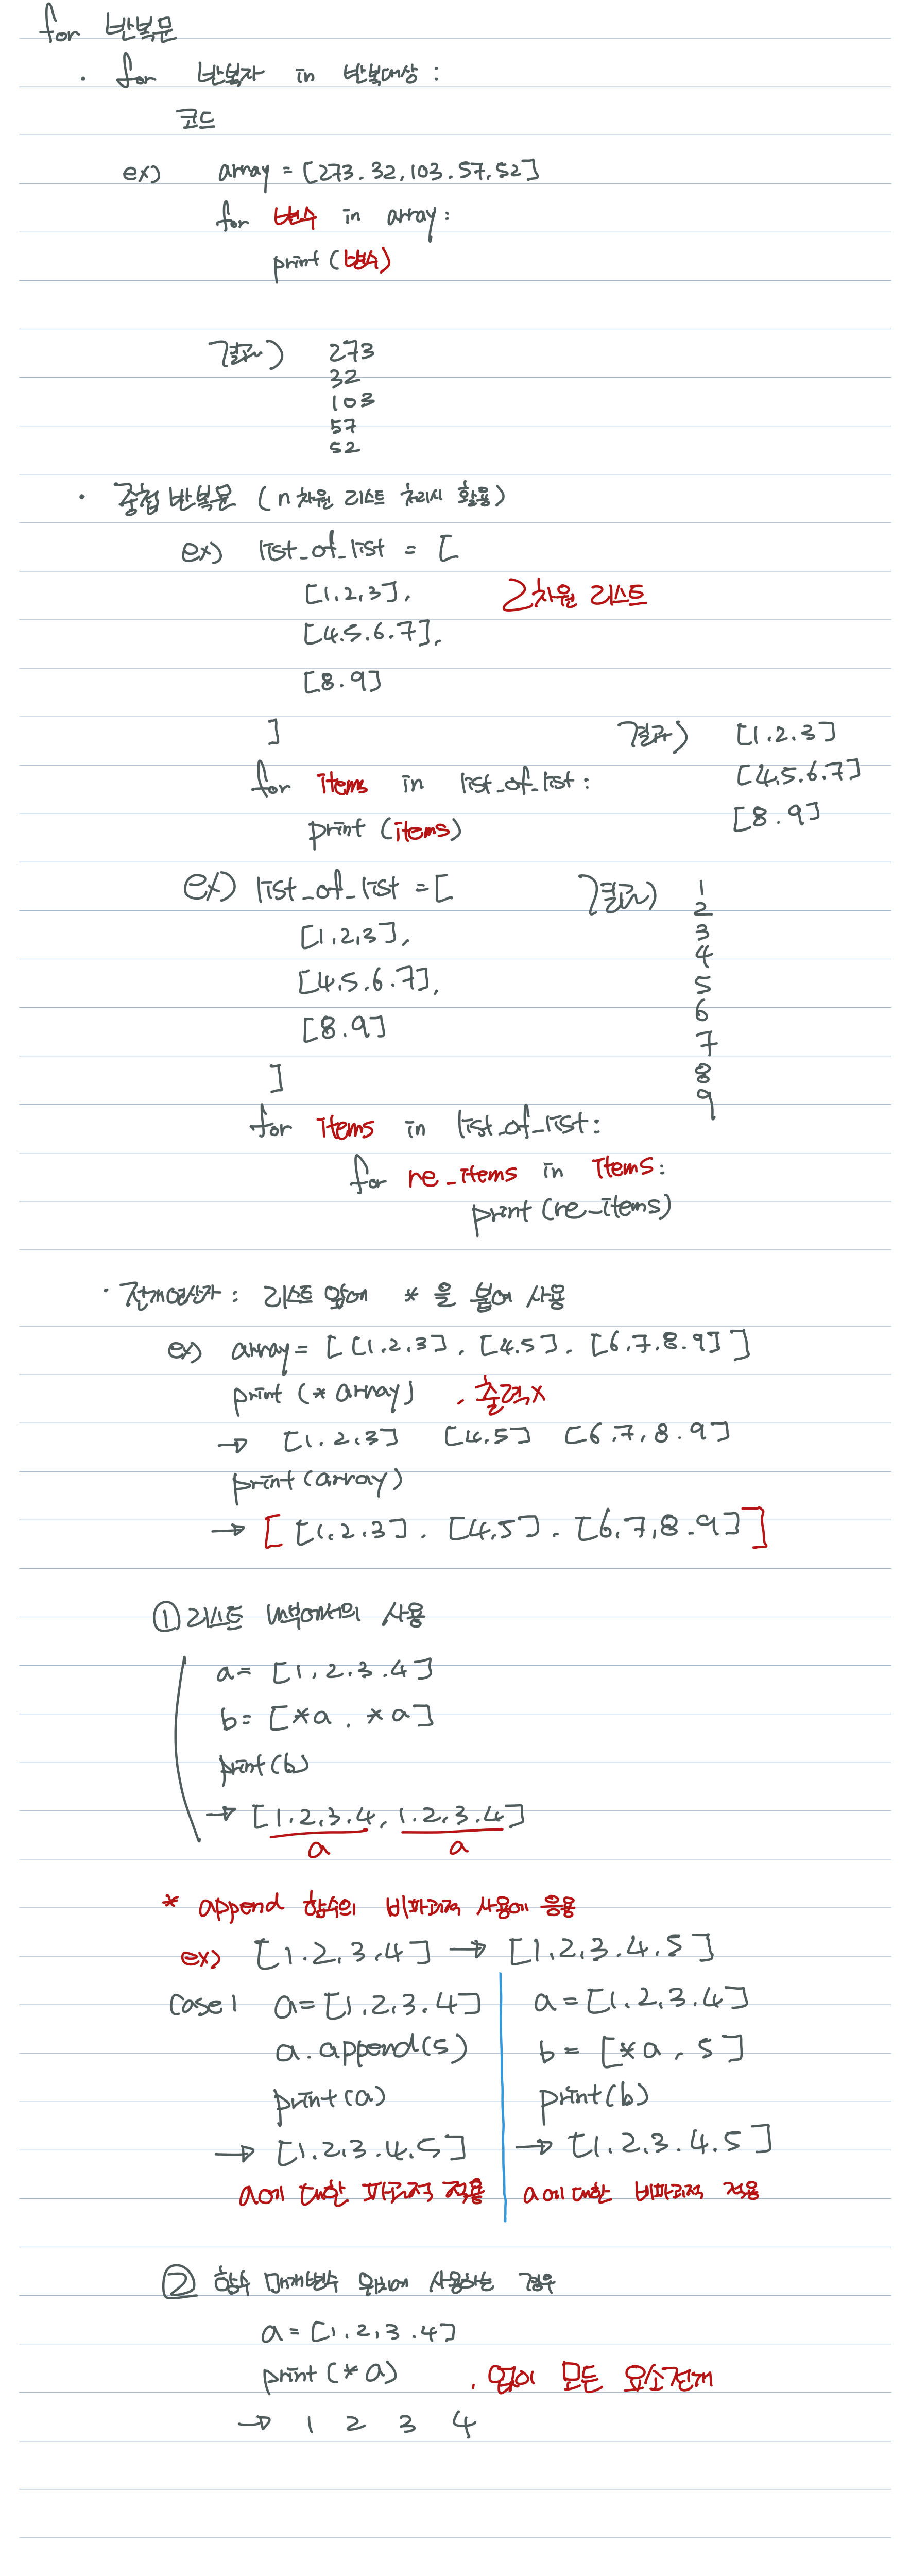 for 반복문
· for 반복자 in 반복대상 :
코드
ex) array = [273. 32, 103. 57, 52]
for 변수 in array :
print (변수)
결과) 273
32
103
57
52
· 중첩 반복문 (n차원 리스트 처리시 활용)
ex) list_of_list = [
[1, 2, 3], 2차원 리스트
[4.5.6.7],
[8.9]
]
결과) [1.2.3]
for items in list_of_list : [4,5.6.7]
print (items) [8.9]
ex) list_of_list = [ 결과) 1
2
[1,2,3], 3
4
[4.5.6.7], 5
6
[8.9] 7
] 8
9
for items in list_of_list :
for re_items in items :
print (re_items)
· 전개연산자 : 리스트 앞에 * 을 붙여 사용
ex) array = [ [1.2.3], [4.5], [6.7.8.9] ]
print (* array) , 출력x
→ [1.2.3] [4.5] [6.7.8.9]
print (array)
→ [ [1.2.3], [4.5], [6.7,8.9] ]
① 리스트 내부에서의 사용
a = [1.2.3.4]
b = [*a, *a]
print(b)
→ [1.2.3.4, 1.2.3.4]
a a
* append 함수의 비파괴적 사용에 응용
ex) [1.2.3.4] → [1.2.3.4.5]
Case 1 a = [1.2.3.4] a = [1.2.3.4]
a.append(5) b = [*a, 5]
print(a) print(b)
→ [1.2.3.4.5] → [1.2.3.4.5]
a에 대한 파괴적 적용 a에 대한 비파괴적 적용
② 함수 매개변수 위치에 사용하는 경우
a = [1.2.3.4]
print (*a) , 없이 모든 요소전개
→ 1 2 3 4